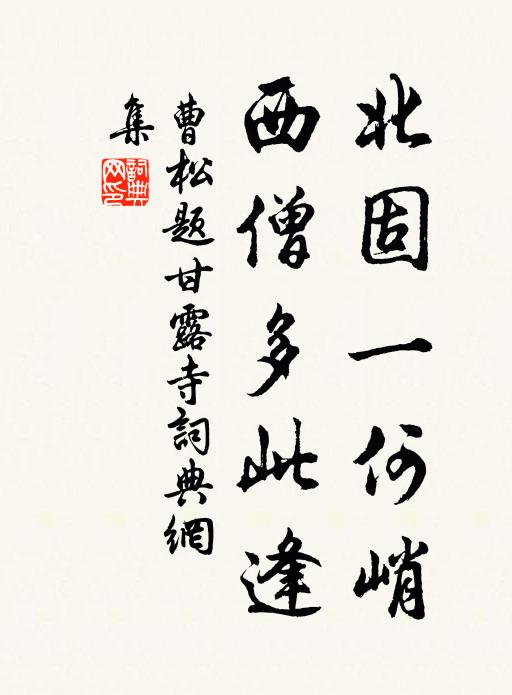 北固一何峭
西僧多此逢
曹松题甘露寺詞典網
集
詞典
网印